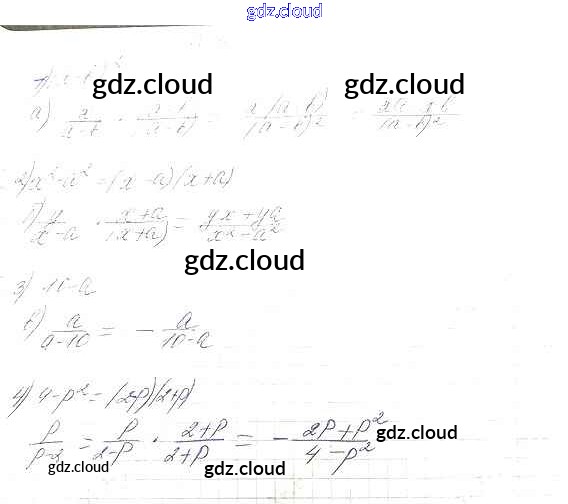 gdz.cloud
gdz.cloud
gdz.cloud
а) a/(a-b) · (a-b)/(a-b) = a(a-b)/(a-b)²
2) x²-a² = (x-a)(x+a)
y/(x-a) · (x+a)/(x+a) = (yx+ya)/(x²-a²)
gdz.cloud
3) 10-a
a/(a-10) = - a/(10-a)
4) 4-p² = (2-p)(2+p)
p/(p-2) = p/(2-p) · (2+p)/(2+p) = - (2p+p²)/(4-p²)
gdz.cloud
gdz.cloud
gdz.cloud